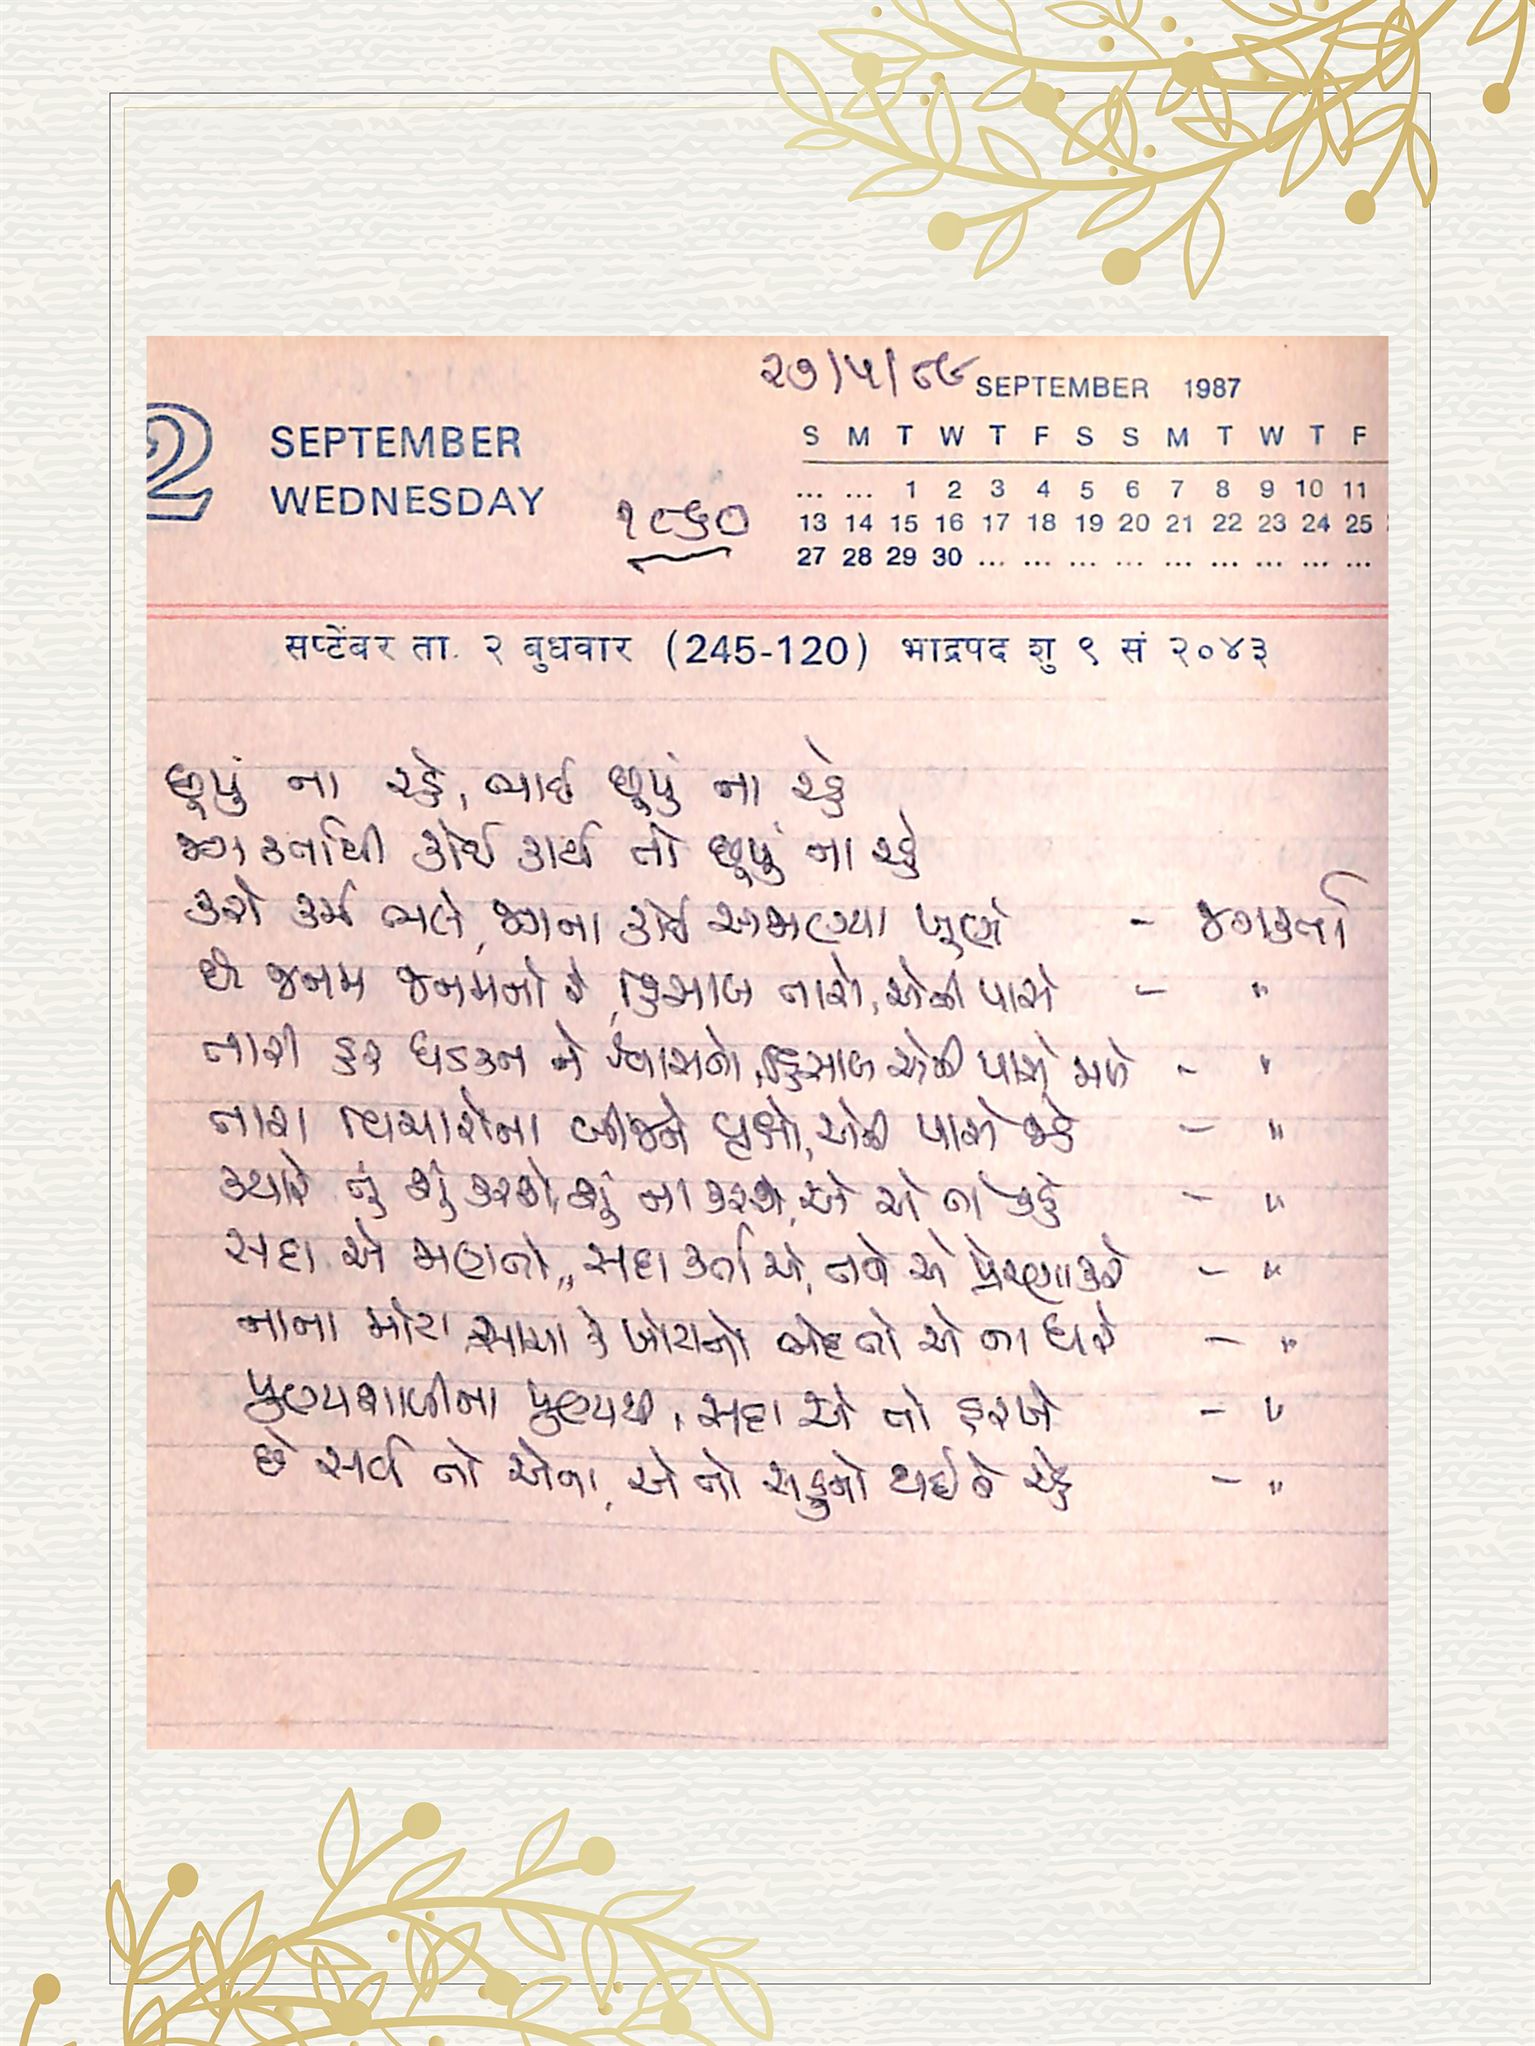 ૨૭/૫/૮૯
SEPTEMBER 1987
2 SEPTEMBER
WEDNESDAY
૧૮૬૦
S M T W T F S S M T W T F
... ... 1 2 3 4 5 6 7 8 9 10 11
13 14 15 16 17 18 19 20 21 22 23 24 25
27 28 29 30 ... ... ... ... ... ... ... ... ...
सप्टेंबर ता. २ बुधवार (245-120) भाद्रपद शु ९ सं २०४३
છૂપું ના રહે, ભાઈ છૂપું ના રહે
જગકર્તાથી કોઈ કાર્ય તો છૂપું ના રહે
કરો કર્મ ભલે, જગના કોઈ અજાણ્યા ખૂણે - જગકર્તા
છે જનમ જનમનો રે, હિસાબ તારો, એની પાસે - "
તારી હર ધડકન ને શ્વાસનો, હિસાબ એની પાસે મળે - "
તારા વિચારોના બીજને વૃક્ષો, એની પાસે જડે - "
ક્યારે તું શું કરશે, શું ના કરશે, એ તો કહે - "
સદા એ જાણતો, સદા કર્તા એ, તને એ પ્રેરણા કરે - "
નાના મોટા, સાચા કે ખોટાનો ભેદ તો એ ના ધરે - "
પુણ્યશાળીના પુણ્યથી, સદા એ તો હરખે - "
છે સર્વ તો એના, એ તો સહુનો થઈને રહે - "